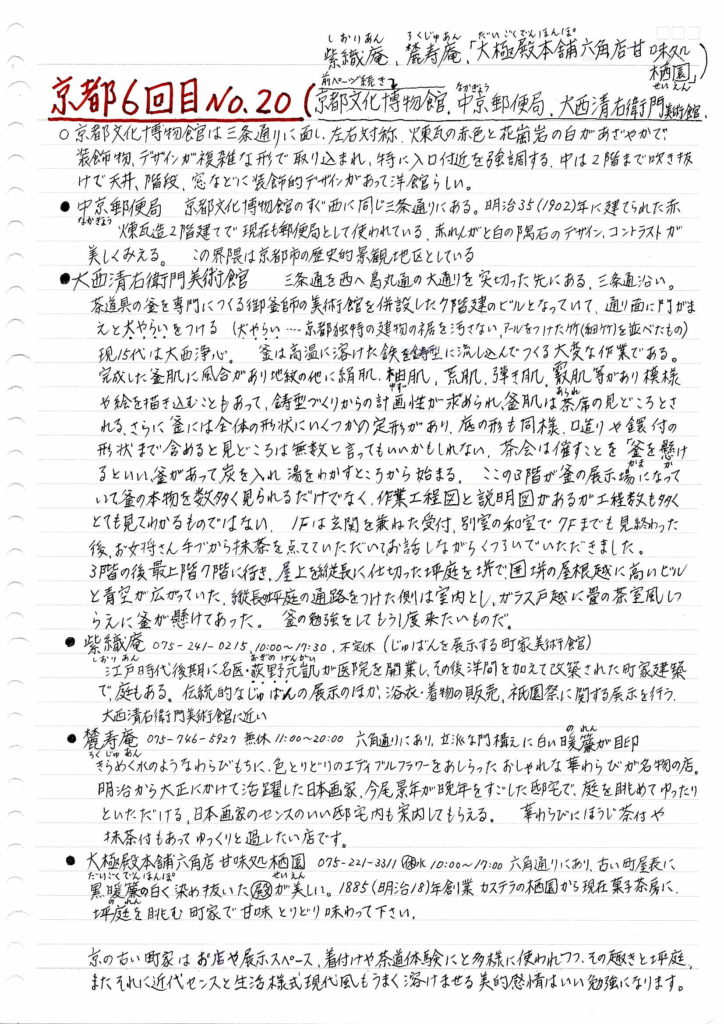 紫織庵、麓寿庵、「大極殿本舗六角店甘味処
しおりあん ろくじゅあん だいごくでんほんぽ
栖園」
せいえん
京都6回目No.20(前ページ続き と
京都文化博物館、中京郵便局、大西清右衛門美術館.
なかぎょう
○ 京都文化博物館は三条通りに面し、左右対称、煉瓦の赤色と花崗岩の白があざやかで
装飾物、デザインが複雑な形で取り込まれ、特に入口付近を強調する、中は2階まで吹き抜
けで天井、階段、窓などに装飾的デザインがあって洋館らしい。
● 中京郵便局 京都文化博物館のすぐ西に同じ三条通りにある。明治35(1902)年に建てられた赤
なかぎょう
煉瓦造2階建てで現在も郵便局として使われている、赤れんがと白の隅石のデザイン、コントラストが
美しくみえる。 この界隈は京都市の歴史的景観地区としている
● 大西清右衛門美術館 三条通を西へ烏丸通の大通りを突切った先にある、三条通沿い。
茶道具の釜を専門につくる御釜師の美術館を併設した7階建のビルとなっていて、通り面に門がま
えと犬やらいをつける (犬やらい‥‥京都独特の建物の裾を汚さない、アールをつけた竹(細竹)を並べたもの)
現15代は大西浄心。 釜は高温に溶けた鉄を鋳型に流し込んでつくる大変な作業である。
完成した釜肌に風合があり地紋の他に絹肌、柚肌、荒肌、弾き肌、霰肌等があり模様
ゆず あられ
や絵を描き込むこともあって、鋳型づくりからの計画性が求められ、釜肌は茶席の見どころとさ
れる、さらに釜には全体の形状にいくつかの定形があり、底の形も同様、口造りや鐶付の
形状まで含めると見どころは無数と言ってもいいかもしれない、茶会は催すことを「釜を懸け
かま か
るといい、釜があって炭を入れ湯をわかすところから始まる。 ここの3階が釜の展示場になって
いて釜の本物を数多く見られるだけでなく、作業工程図と説明図があるが工程数も多く
とても見てわかるものではない、 1Fは玄関を兼ねた受付、別室の和室で7Fまでも見終わった
後、お女将さん手づから抹茶を点てていただいてお話しながらくつろいでいただきました。
3階の後最上階7階に行き、屋上を縦長に仕切った坪庭を塀で囲塀の屋根越に高いビル
と青空が広がっていた、縦長の坪庭の通路をつけた側は室内とし、ガラス戸越に畳の茶室風しつ
らえに釜が懸けてあった。 釜の勉強をしてもう1度来たいものだ。
● 紫織庵 075-241-0215 10:00~17:30、不定休(じゅばんを展示する町家美術館)
しおりあん
江戸時代後期に名医・荻野元凱が医院を開業し、その後洋間を加えて改築された町家建築
おぎの げんがい
で、庭もある。伝統的なじゅばんの展示のほか、浴衣・着物の販売、祇園祭に関する展示を行う、
大西清右衛門美術館に近い
● 麓寿庵 075-746-5927 無休 11:00~20:00 六角通りにあり、立派な門構えに白い暖簾が目印
ろくじゅ あん のれん
きらめく水のようなわらびもちに、色とりどりのエディブルフラワーをあしらったおしゃれな華わらびが名物の店。
明治から大正にかけて活躍した日本画家、今尾景年が晩年をすごした邸宅で、庭を眺めてゆったり
といただける、日本画家のセンスのいい邸宅内も案内してもらえる。 華わらびにほうじ茶付や
抹茶付もあってゆっくりと過したい店です。
● 大極殿本舗六角店 甘味処栖園 075-221-3311 水休 10:00~17:00 六角通りにあり、古い町屋長に
だいごくでんほんぽ せいえん
黒暖簾の白く染め抜いた殿が美しい。1885(明治18)年創業 カステラの栖園から現在菓子茶房に、
のれん
坪庭を眺む町家で甘味とりどり味わって下さい。
京の古い町家はお店や展示スペース、着付けや茶道体験にと多様に使われつつ、その趣きと坪庭、
またそれに近代センスと生活様式現代風もうまく溶けませる美的感情はいい勉強になります。